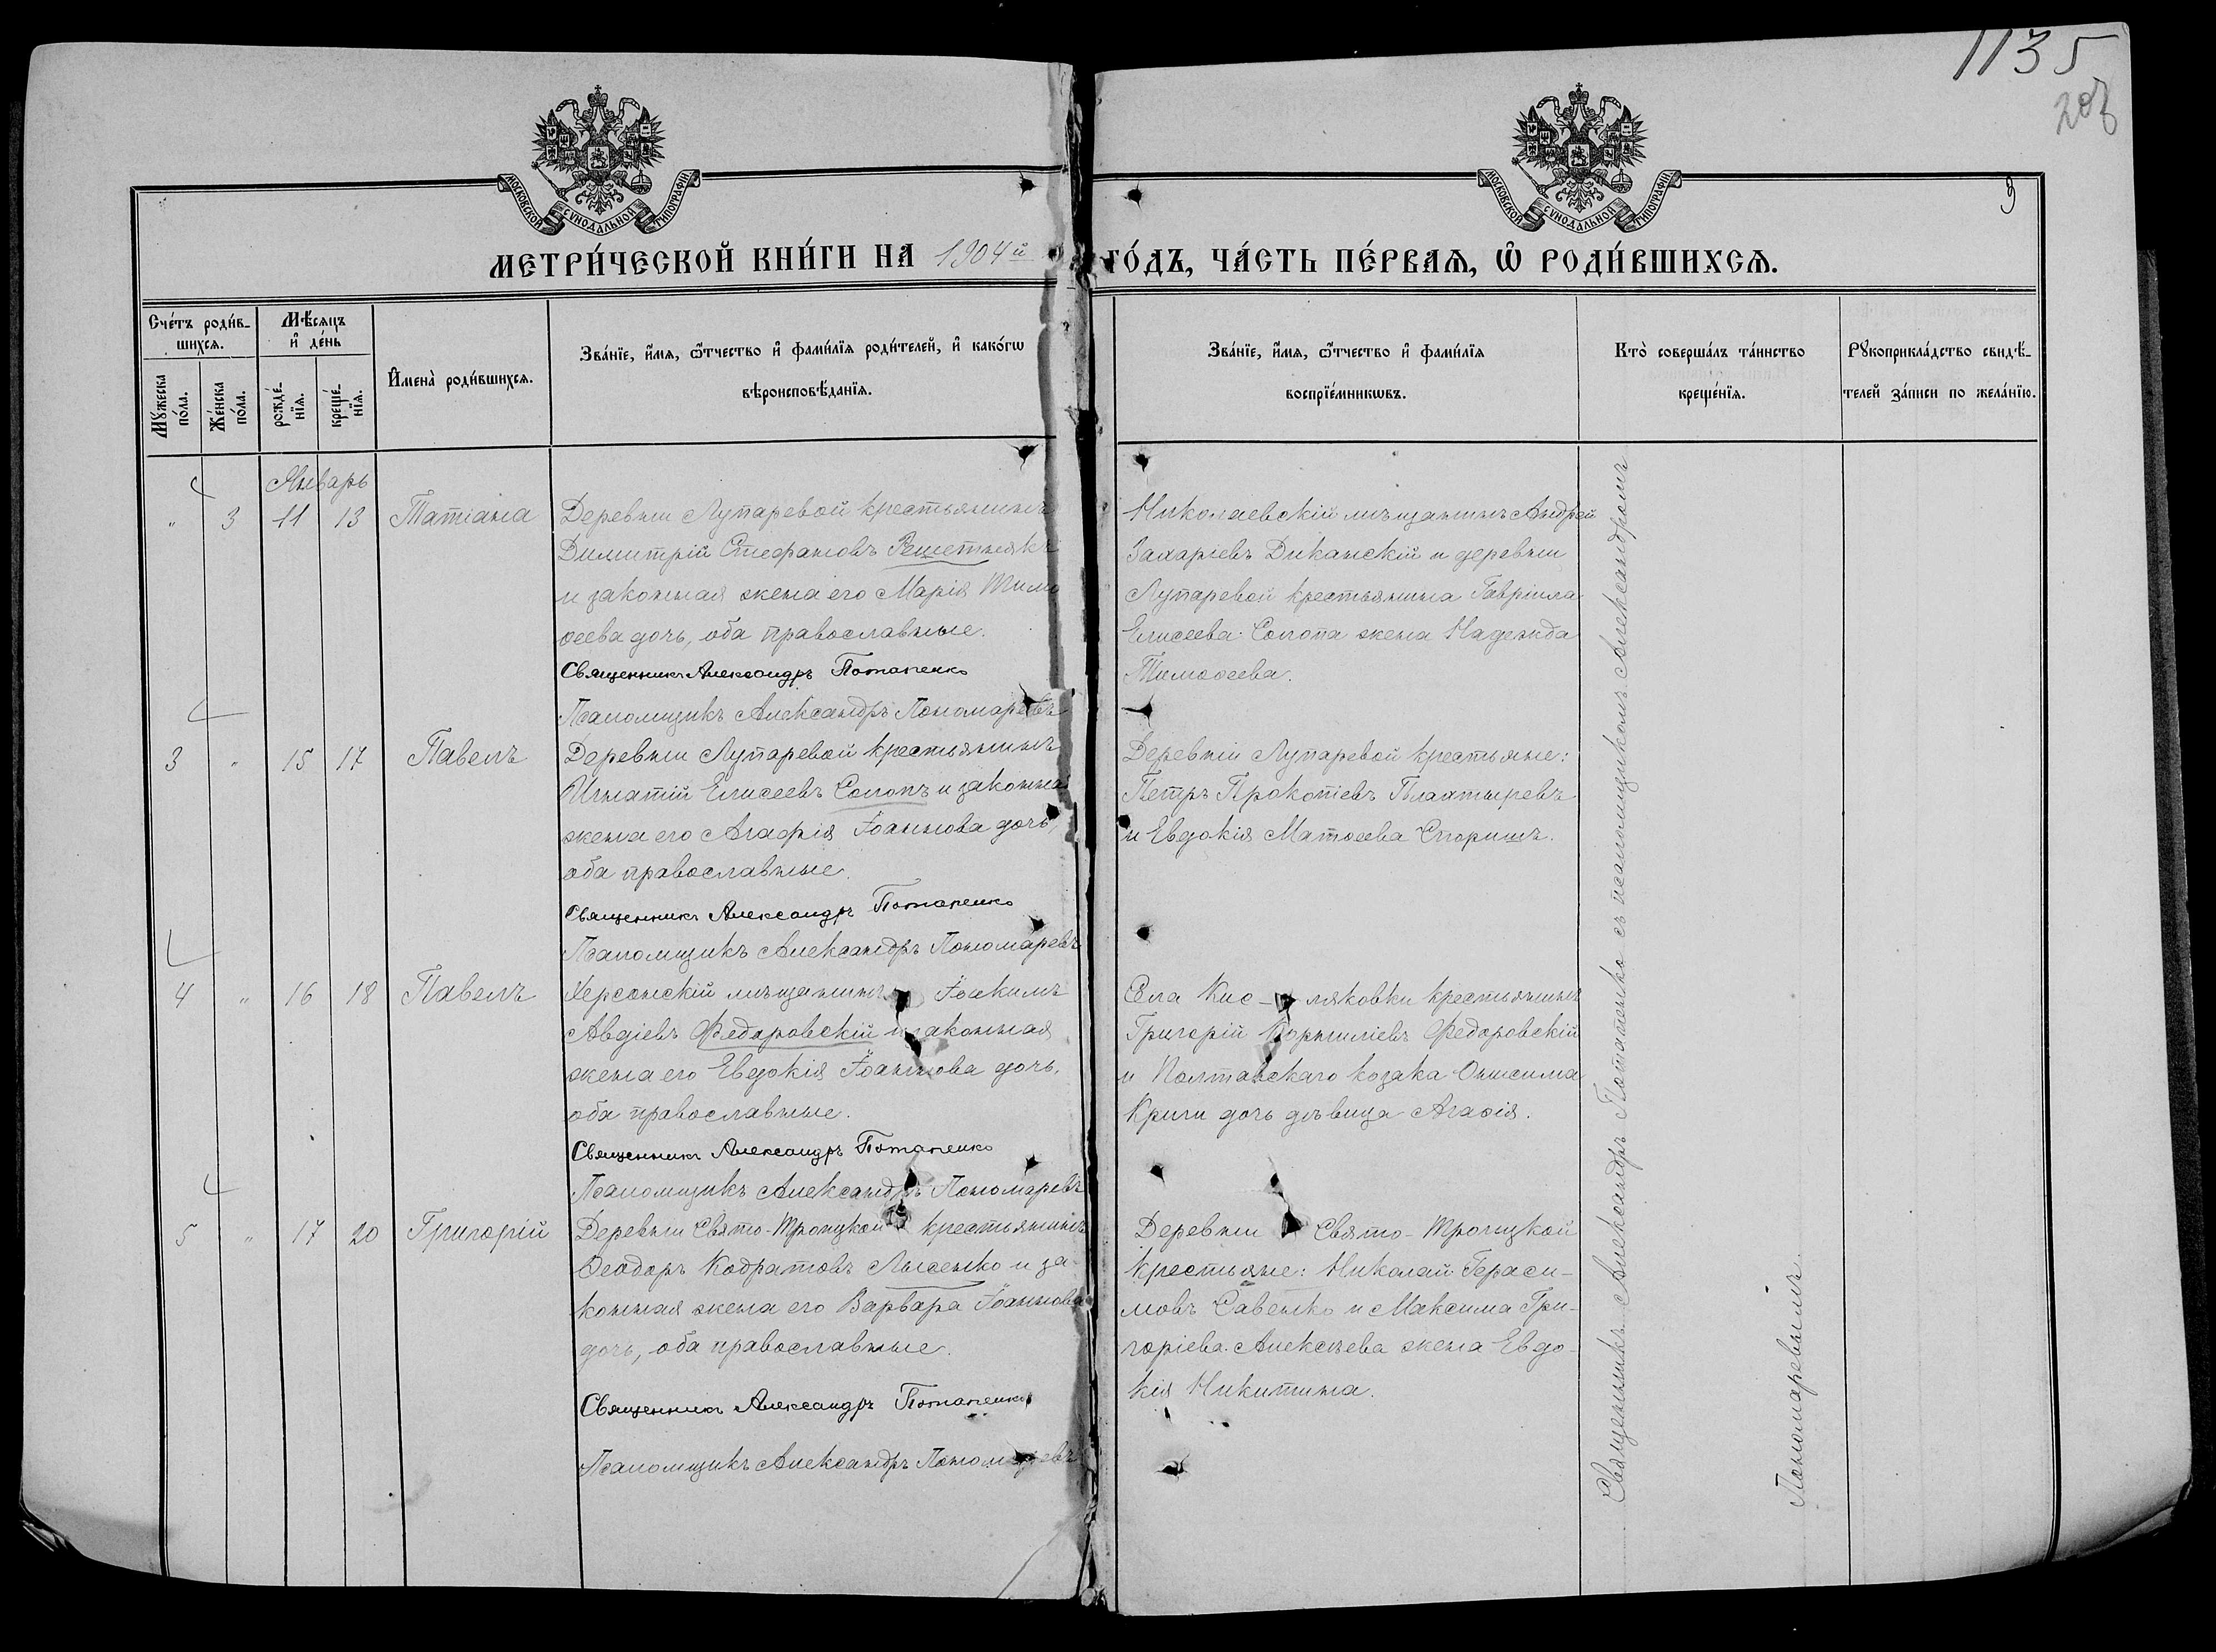 1135
207
3
МОСКОВСКОЙ СѴНОДАЛЬНОЙ ТИПОГРАФІИ
МОСКОВСКОЙ СѴНОДАЛЬНОЙ ТИПОГРАФІИ
МЕТРИ́ЧЕСКОЙ КНИ́ГИ НА 1904й ГО́ДЪ, ЧА́СТЬ ПЕ́РВАѦ, Ѿ РОДИ́ВШИХСѦ.
Сче́тъ роди́в-
шихсѧ.
Мѣ́сѧцъ
и҆ де́нь
Мꙋ́жеска
по́ла.
Же́нска
по́ла.
рожде́-
нїѧ.
креще́-
нїѧ.
И҆мена̀ роди́вшихсѧ.
Зва́нїе, и҆́мѧ, ѻ҆́тчество и҆ фами́лїѧ роди́телей, и҆ како́гѡ
вѣроисповѣ́данїѧ.
Зва́нїе, и҆́мѧ, ѻ҆́тчество и҆ фами́лїѧ
воспрїе́мникѡвъ.
Кто̀ соверша́лъ та́инство
креще́нїѧ.
Рꙋкоприкла́дство свидѣ́-
телей за́писи по жела́нїю.
Январь
" 3 11 13 Татіана
Деревни Лупаревой крестьянинъ
Димитрій Стефановъ Решетнякъ
и законная жена его Марія Тимо
ѳеева дочь, оба православные.
Священникъ Александръ Потапенко
Псаломщикъ Александръ Пономаревъ
Николаевскій мѣщанинъ Андрей
Захаріевъ Диканскій и деревни
Лупаревой крестьянина Гавріила
Елисеева Солопа жена Надежда
Тимоѳеева.
3 " 15 17 Павелъ
Деревни Лупаревой крестьянинъ
Игнатій Елисеевъ Солопъ и законная
жена его Агафія Іоаннова дочь,
оба православные.
Священникъ Александръ Потапенко
Псаломщикъ Александръ Пономаревъ
Деревни Лупаревой крестьяне:
Петръ Прокопіевъ Плахтыревъ
и Евдокія Матѳеева Споришъ.
4 " 16 18 Павелъ
Херсонскій мѣщанинъ Іоакимъ
Авдіевъ Федоровскій и законная
жена его Евдокія Іоаннова дочь,
оба православные.
Священникъ Александръ Потапенко
Псаломщикъ Александръ Пономаревъ
Села Кис-ляковки крестьянинъ
Григорій Корниліевъ Федоровскій
и Полтавскаго козака Онисима
Криги дочь дѣвица Агаѳія.
5 " 17 20 Григорій
Деревни Свято-Троицкой крестьянинъ
Ѳеодоръ Кодратовъ Лысенко и за-
конная жена его Варвара Іоаннова
дочь, оба православные.
Священникъ Александръ Потапенко
Псаломщикъ Александръ Пономаревъ
Деревни Свято-Троицкой
крестьяне: Николай Гераси-
мовъ Савенко и Максима Гри-
горіева Алексѣева жена Евдо-
кія Никитина.
Священникъ Александръ Потапенко съ псаломщикомъ Александромъ
Пономаревымъ.